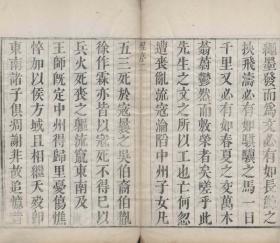 繩墨發而為文必有如長鯨之
挾飛濤必有如騏驥之馬一日
千里又必有如春夏之交萬木
蓊蔚鬱然而敷榮者矣嗟乎此
先生之文之所以工也亡何
遭喪亂流寇淪陷中州子女凡
五三死於寇曩之吳伯裔伯胤
徐作霖亦皆以寇死不得已以
兵火死喪之軀流竄東南及
王師既定中州得歸里憂傷憔
悴加以侯方域且相繼夭歿即
東南諸子俱凋謝非故追憶